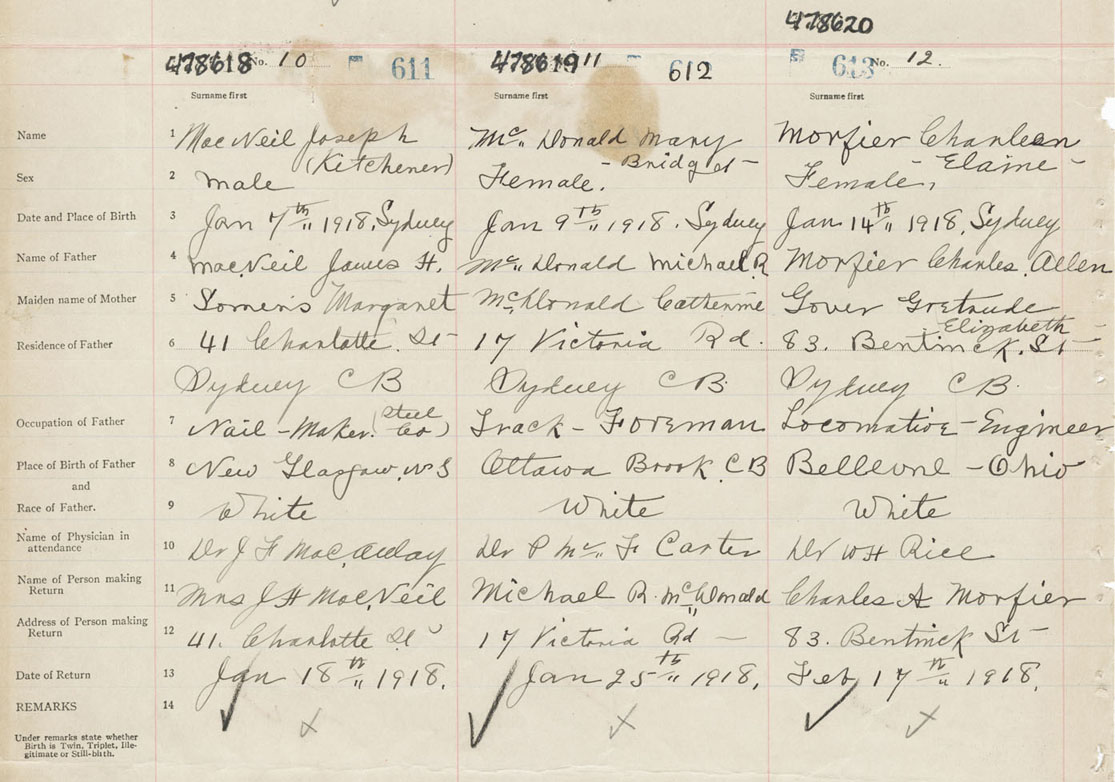 478620
478618 No. 10 611 478619 11 612 613 No. 12.
Surname first Surname first Surname first
Name 1 MacNeil Joseph Mc„ Donald Mary Morfier Charleen
(Kitchener) - Bridget - - Elaine -
Sex 2 male Female. Female,
Date and Place of Birth 3 Jan 7th„ 1918, Sydney Jan 9th„ 1918. Sydney Jan 14th„ 1918, Sydney
Name of Father 4 MacNeil James H. Mc„ Donald Michael R Morfier Charles. Allen
Maiden name of Mother 5 Somers Margaret McDonald Catherine Gover Gretrude
- Elizabeth -
Residence of Father 6 41 Charlotte. St 17 Victoria Rd. 83. Bentinck. St
Sydney C B Sydney C B. Sydney C B.
Occupation of Father 7 Nail - Maker. (Steel Co) Track - Foreman Locomative - Engineer
Place of Birth of Father 8 New Glasgow, N S Ottawa Brook, C B Bellevue - Ohio
and
Race of Father. 9 White White White
Name of Physician in attendance 10 Dr J F MacAulay Dr P Mc„ F Carter Dr W H Rice
Name of Person making Return 11 Mrs J H MacNeil Michael R. McDonald Charles A Morfier
Address of Person making Return 12 41. Charlotte St 17 Victoria Rd — 83. Bentinck St
Date of Return 13 Jan 18th„ 1918. Jan 25th„ 1918, Feb 17th„ 1918.
REMARKS 14
Under remarks state whether
Birth is Twin, Triplet, Ille-
gitimate or Still-birth.